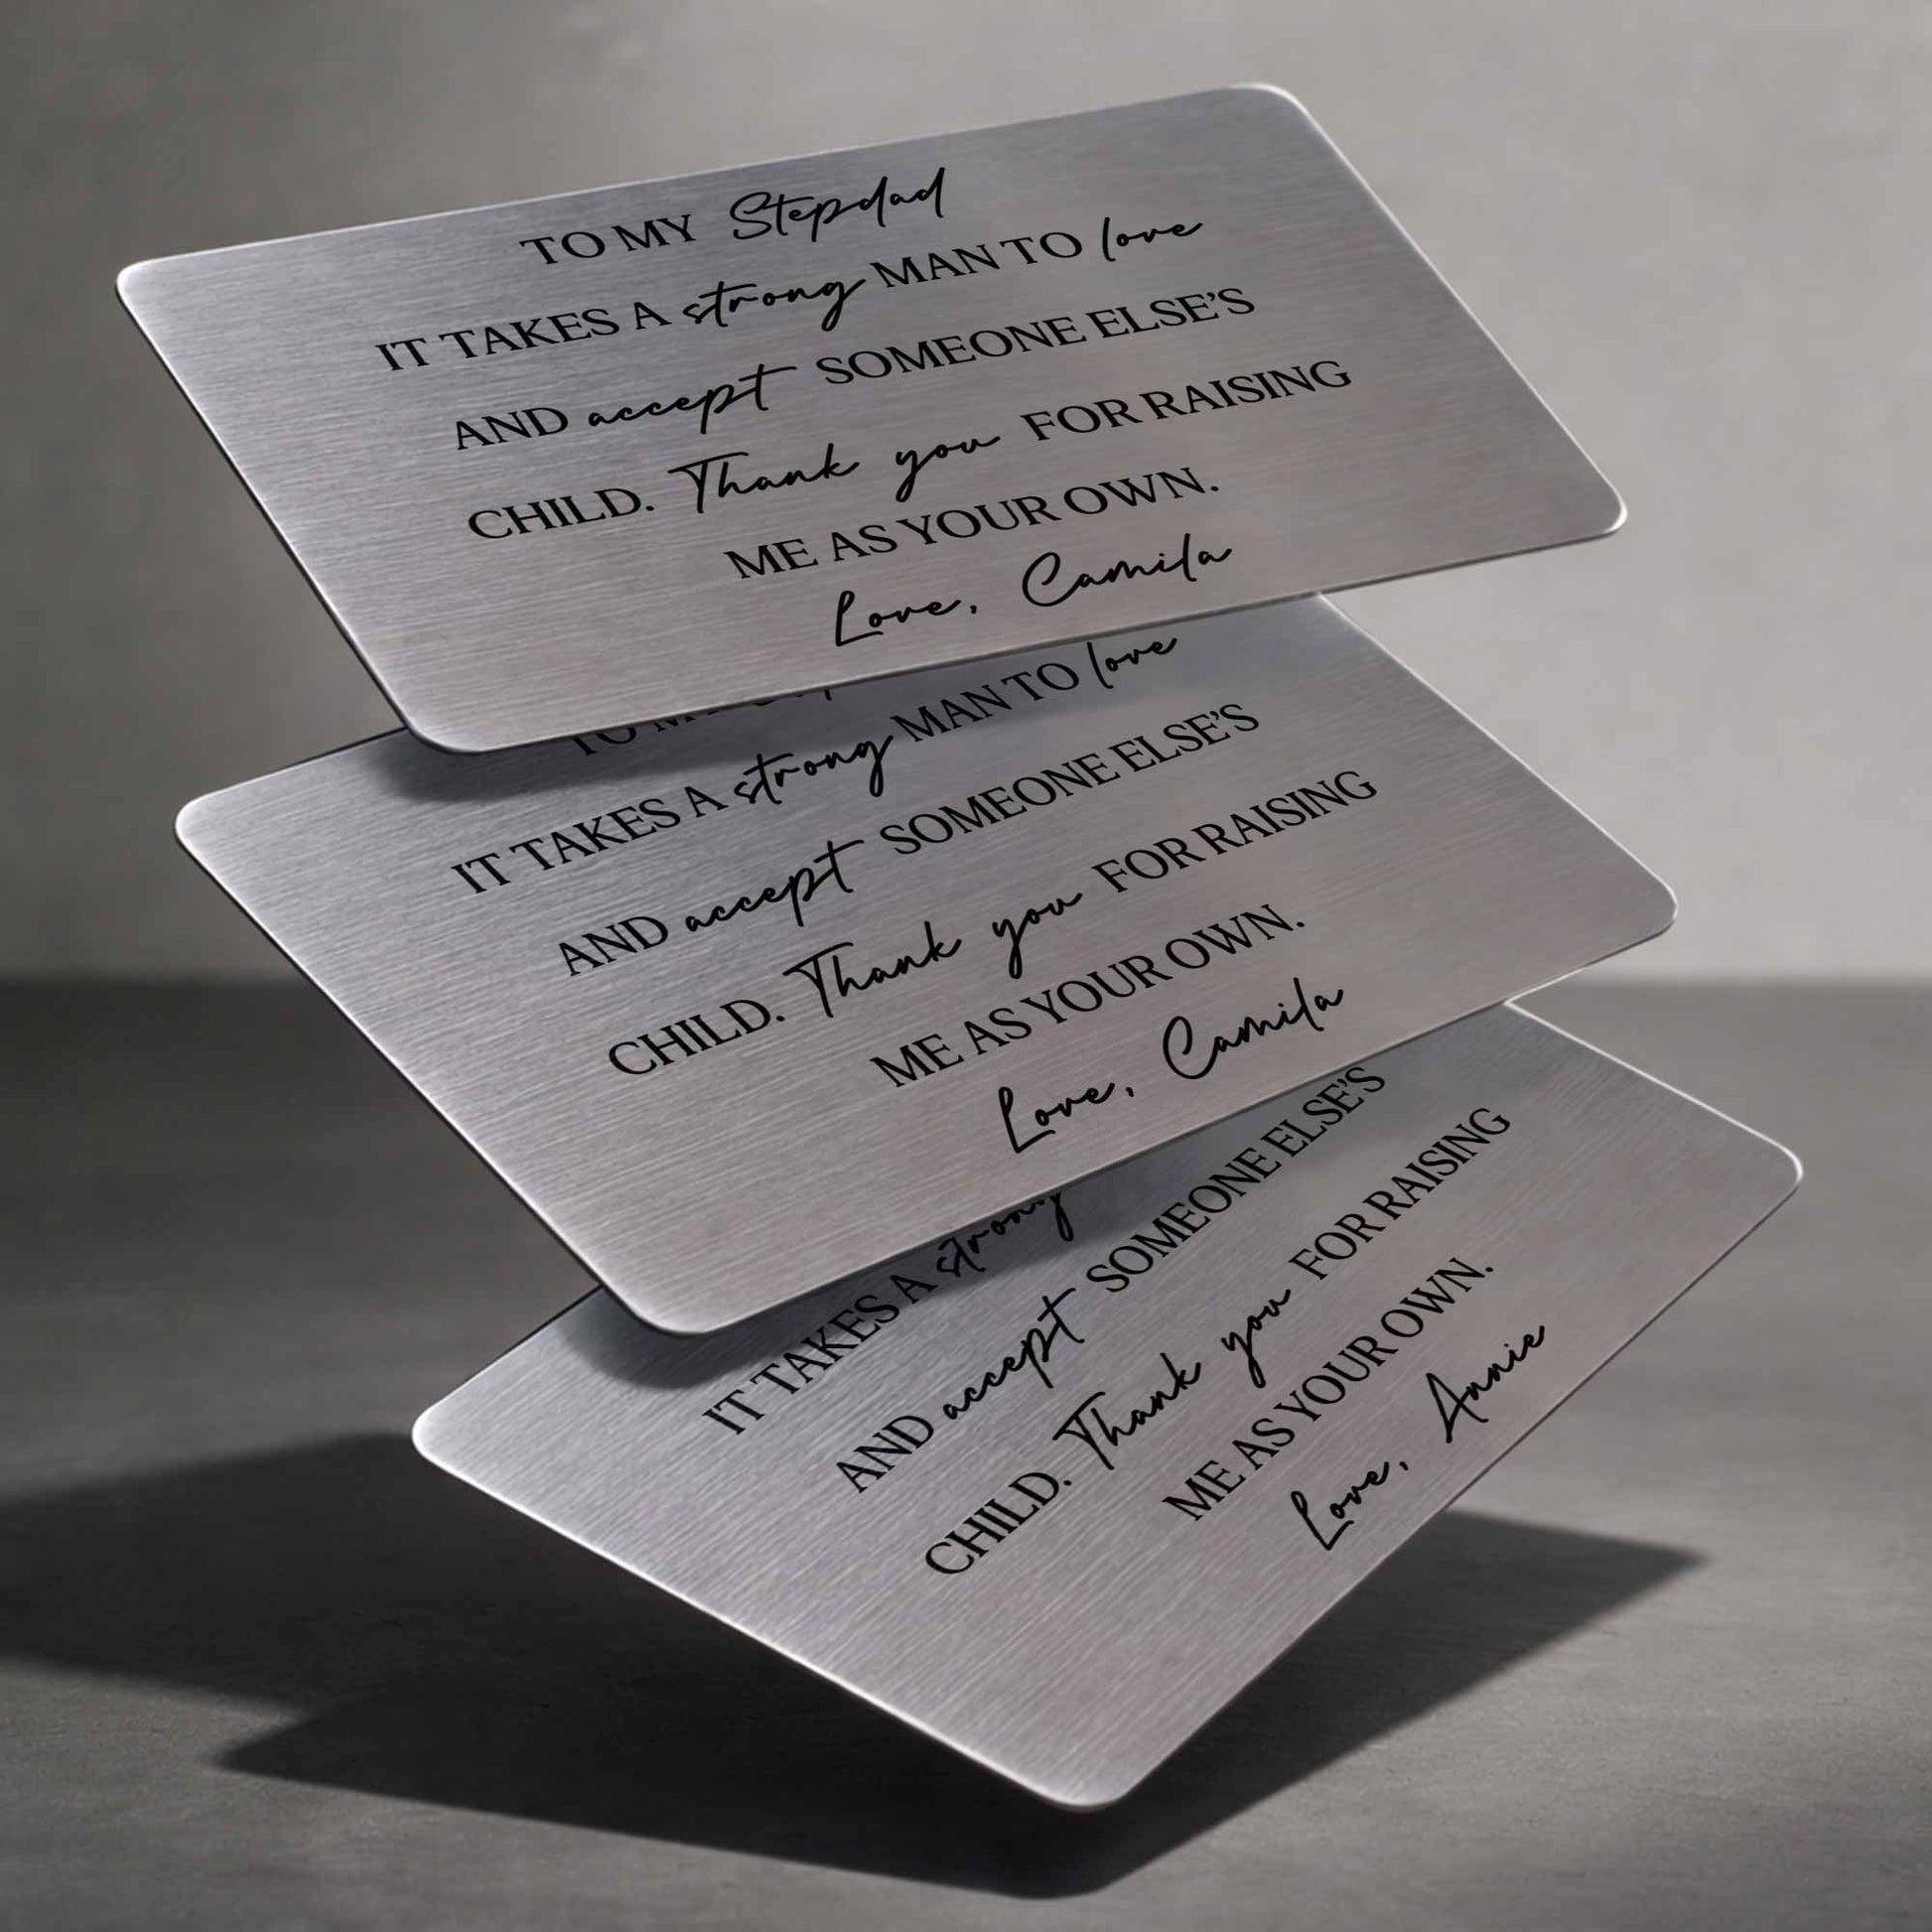 TO MY Stepdad
IT TAKES A strong MAN TO love
AND accept SOMEONE ELSE'S
CHILD. Thank you FOR RAISING
ME AS YOUR OWN.
Love, Camila
IT TAKES A strong MAN TO love
AND accept SOMEONE ELSE'S
CHILD. Thank you FOR RAISING
ME AS YOUR OWN.
Love, Camila
IT TAKES A strong
AND accept SOMEONE ELSE'S
CHILD. Thank you FOR RAISING
ME AS YOUR OWN.
Love, Annie